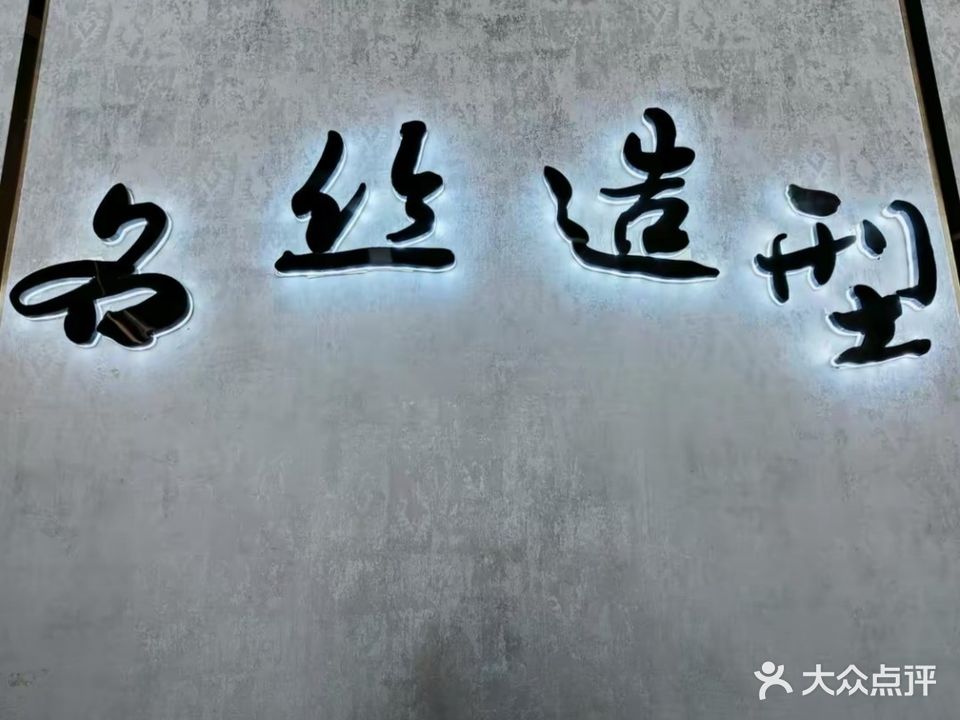 名丝造型
大众点评